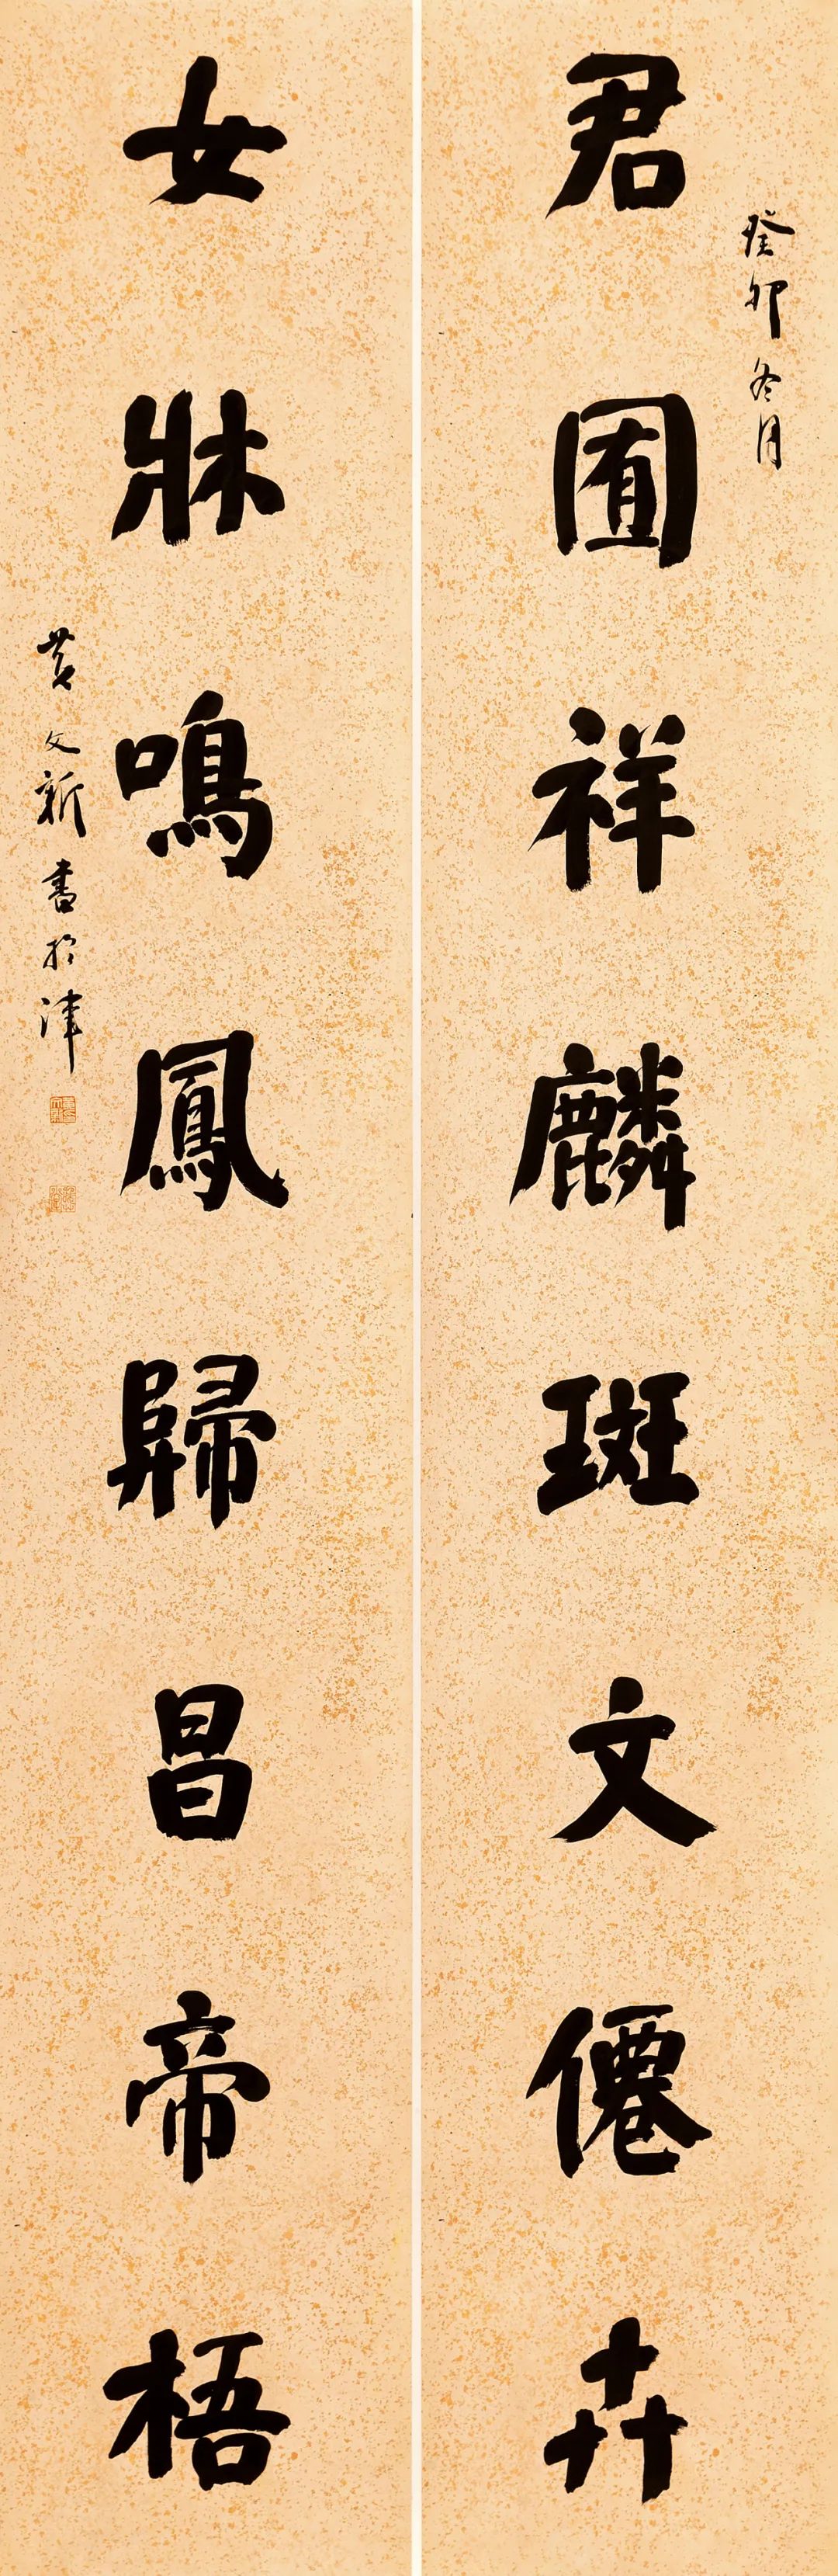 癸卯冬月
君囿祥麟斑文僊卉
女牀鳴鳳歸昌帝梧
黄文新書於津